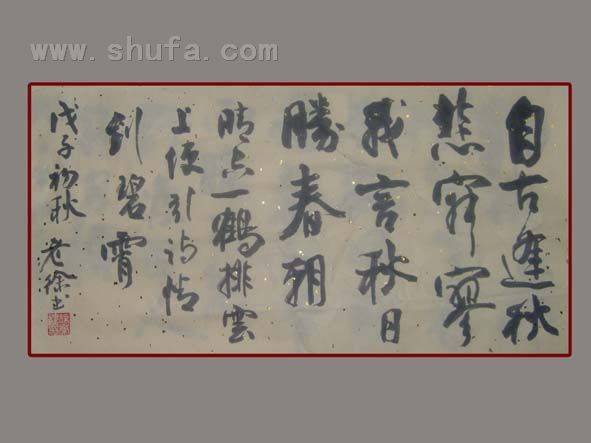 www.shufa.com
自古逢秋
悲寂寥
我言秋日
勝春朝
晴空一鶴排雲
上便引诗情
到碧霄
戊子初秋 老徐书